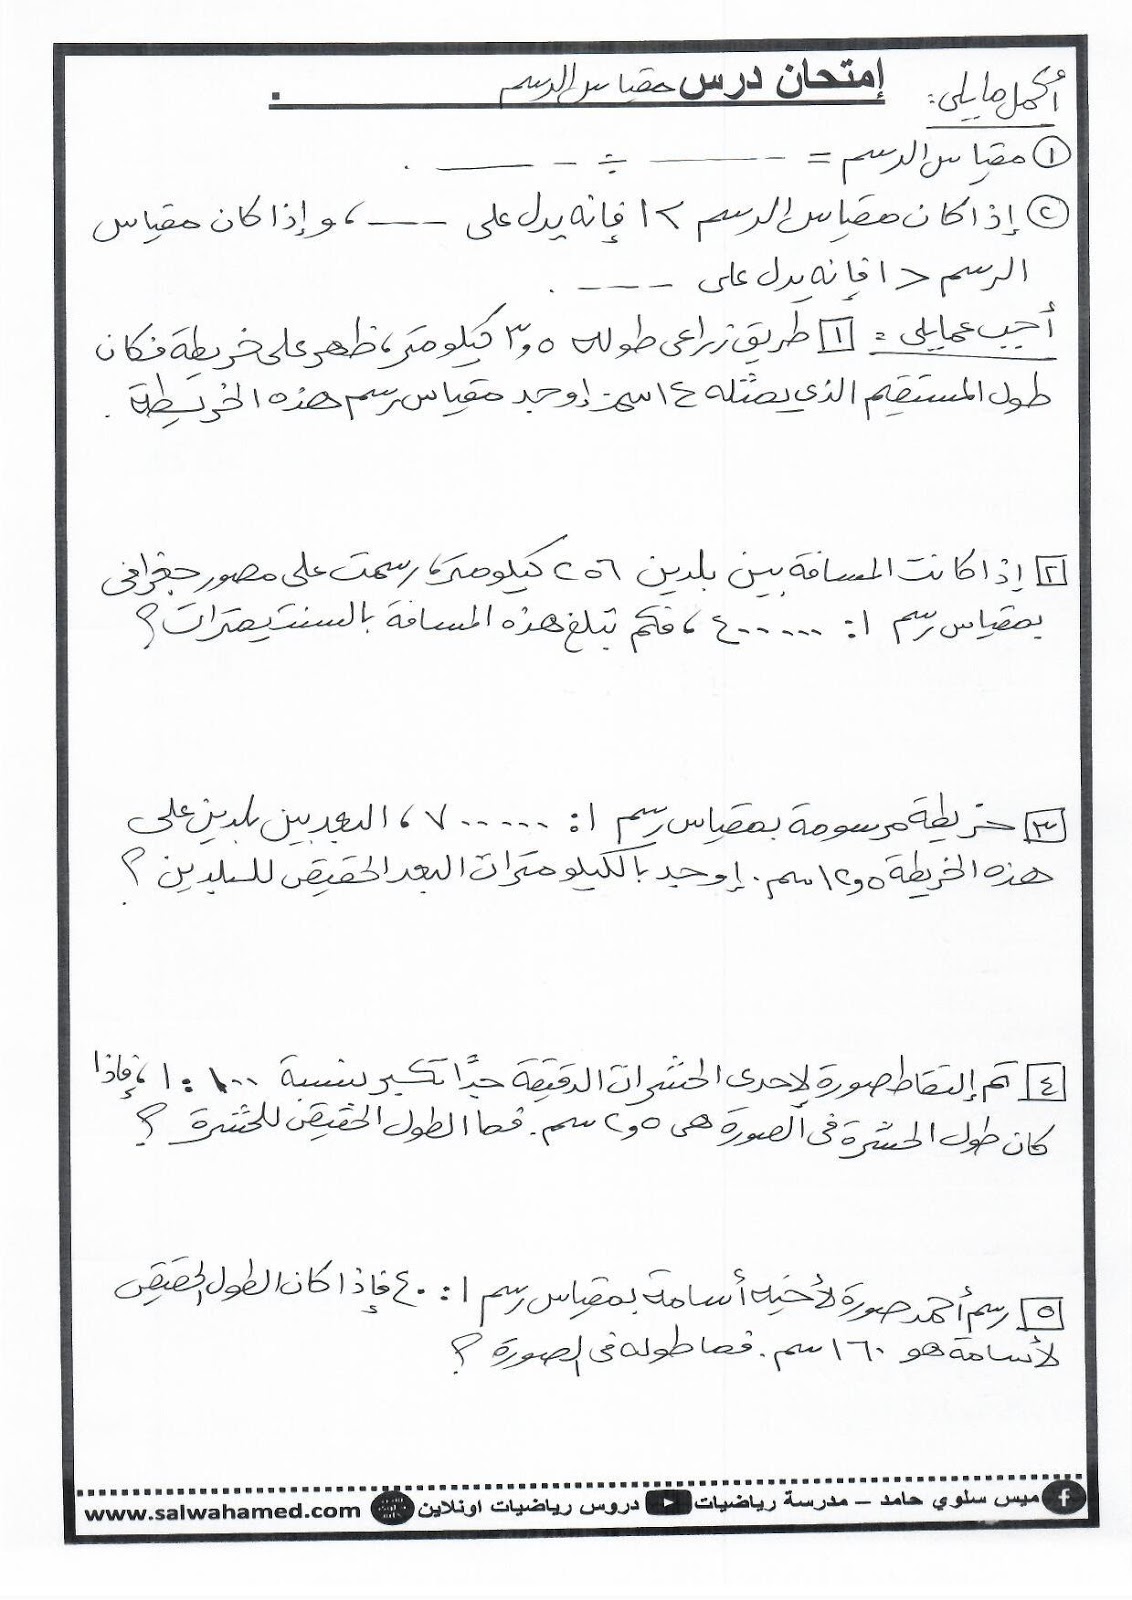 إمتحان درس مقياس الرسم .
أكمل ما يلى :
١ مقياس الرسم = ------ ÷ ------ .
٢ إذا كان مقياس الرسم > ١ فإنه يدل على ---- ، و إذا كان مقياس
الرسم < ١ فإنه يدل على ---- .
أجب عما يلى : ١ طريق زراعى طوله ٣,٥ كيلومتر، ظهر على خريطة فكان
طول المستقيم الذى يمثله ١٤ سم. إوجد مقياس رسم هذه الخريطة .
٢ إذا كانت المسافة بين بلدين ٢٥٦ كيلومتر، رسمت على مصور جغرافى
بمقياس رسم ١ : ٤٠٠٠٠٠٠ ، فكم تبلغ هذه المسافة بالسنتيمترات ؟
٣ خريطة مرسومة بمقياس رسم ١ : ٧٠٠٠٠٠٠ ، البعد بين بلدين على
هذه الخريطة ١٢,٥ سم . إوجد بالكيلومترات البعد الحقيقى للبلدين ؟
٤ تم إلتقاط صورة لإحدى الحشرات الدقيقة جدًا تكبير بنسبة ١٠٠ : ١ ، فإذا
كان طول الحشرة فى الصورة هى ٢,٥ سم . فما الطول الحقيقى للحشرة ؟
٥ رسم أحمد صورة لأخيه أسامة بمقياس رسم ١ : ٤٠ فإذا كان الطول الحقيقى
لأسامة هو ١٦٠ سم . فما طوله فى الصورة ؟
ميس سلوي حامد – مدرسة رياضيات دروس رياضيات اونلاين www.salwahamed.com